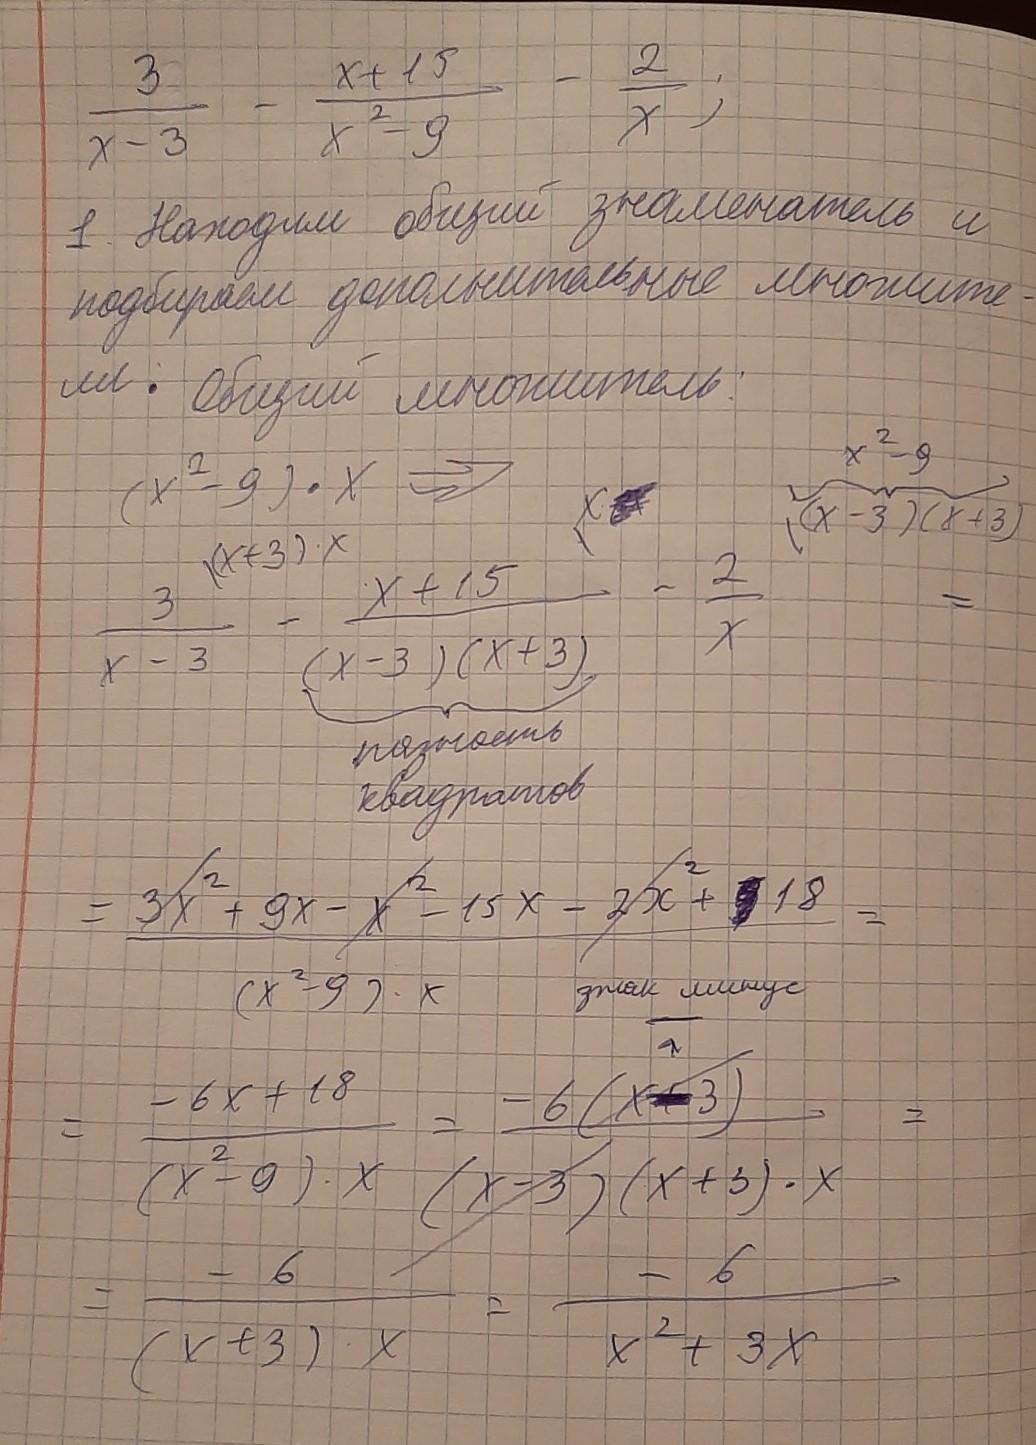 3/(x-3) - (x+15)/(x²-9) - 2/x ;
1. Находим общий знаменатель и
подбираем дополнительные множите-
ли. Общий множитель:
(x²-9)·x ⇒
x²-9
x (x-3)(x+3)
(x+3)·x
3/(x-3) - (x+15)/((x-3)(x+3)) - 2/x =
разность
квадратов
= (3x² + 9x - x² - 15x - 2x² + 18)/((x²-9)·x) =
знак минус
= (-6x+18)/((x²-9)·x) = (-6(x-3))/((x-3)(x+3)·x) =
= -6/((x+3)·x) = -6/(x²+3x)